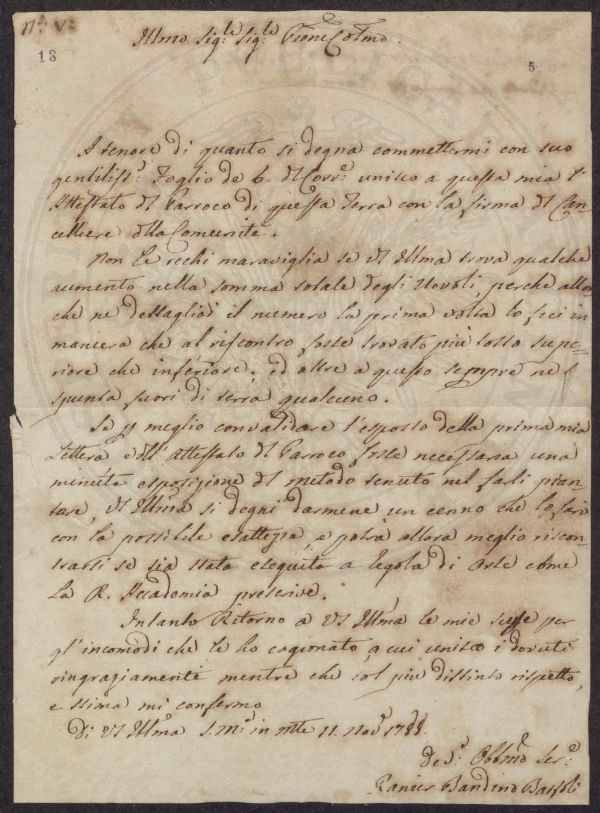 N.º V.º
Illmo Sig.le Sig.le Prone Colmo.
18
5
A tenore di quanto si degna commettermi con suo
gentiliss.º Foglio de 6. del Corr.e unisco a questa mia l'
Attestato del Parroco di questa Terra con la firma del Can-
celliere della Comunità.
Non Le rechi maraviglia se VS Illma trova qualche
aumento nella somma totale degli Novoli, perche allo-
che ne dettagliai il numero la prima volta lo feci in
maniera che al riscontro fosse trovato più tosto supe-
riore che inferiore; ed oltre a questo sempre ne
spunta fuori di terra qualcuno.
Se p meglio convalidare l'esposto della prima mia
Lettera e dell'attestato del Parroco fosse necessaria una
minuta esposizione del metodo tenuto nel farli pian-
tare, VS Illma si degni darmene un cenno che lo farò
con la possibile esattezza, e potrà allora meglio riscon-
trarsi se sia stata eseguita a regola di Arte come
La R. Accademia prescrive.
Intanto Ritorno a VS Illma le mie scuse per
gl'incomodi che le ho cagionato, a cui unisco i dovuti
ringraziamenti mentre che col più distinto rispetto,
e stima mi confermo
Di VS Illma S. M.º in mte 11. Nov.e 1788.
De.º Obblmo Ser.e
Ranier Bandino